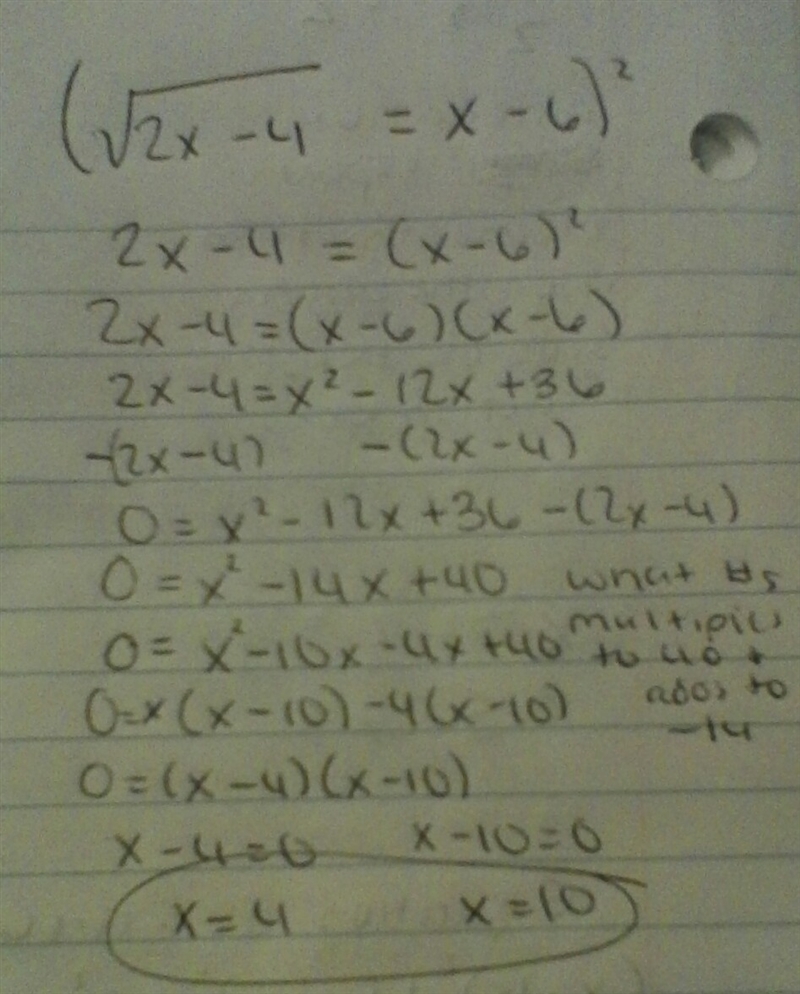 (√2x - 4 = x - 6)²
2x - 4 = (x - 6)²
2x - 4 = (x - 6)(x - 6)
2x - 4 = x² - 12x + 36
-(2x - 4) -(2x - 4)
0 = x² - 12x + 36 - (2x - 4)
0 = x² - 14x + 40
0 = x² - 10x - 4x + 40
0 = x(x - 10) - 4(x - 10)
0 = (x - 4)(x - 10)
x - 4 = 0 x - 10 = 0
x = 4 x = 10
what #s
multiplies
to 40 +
adds to
-14